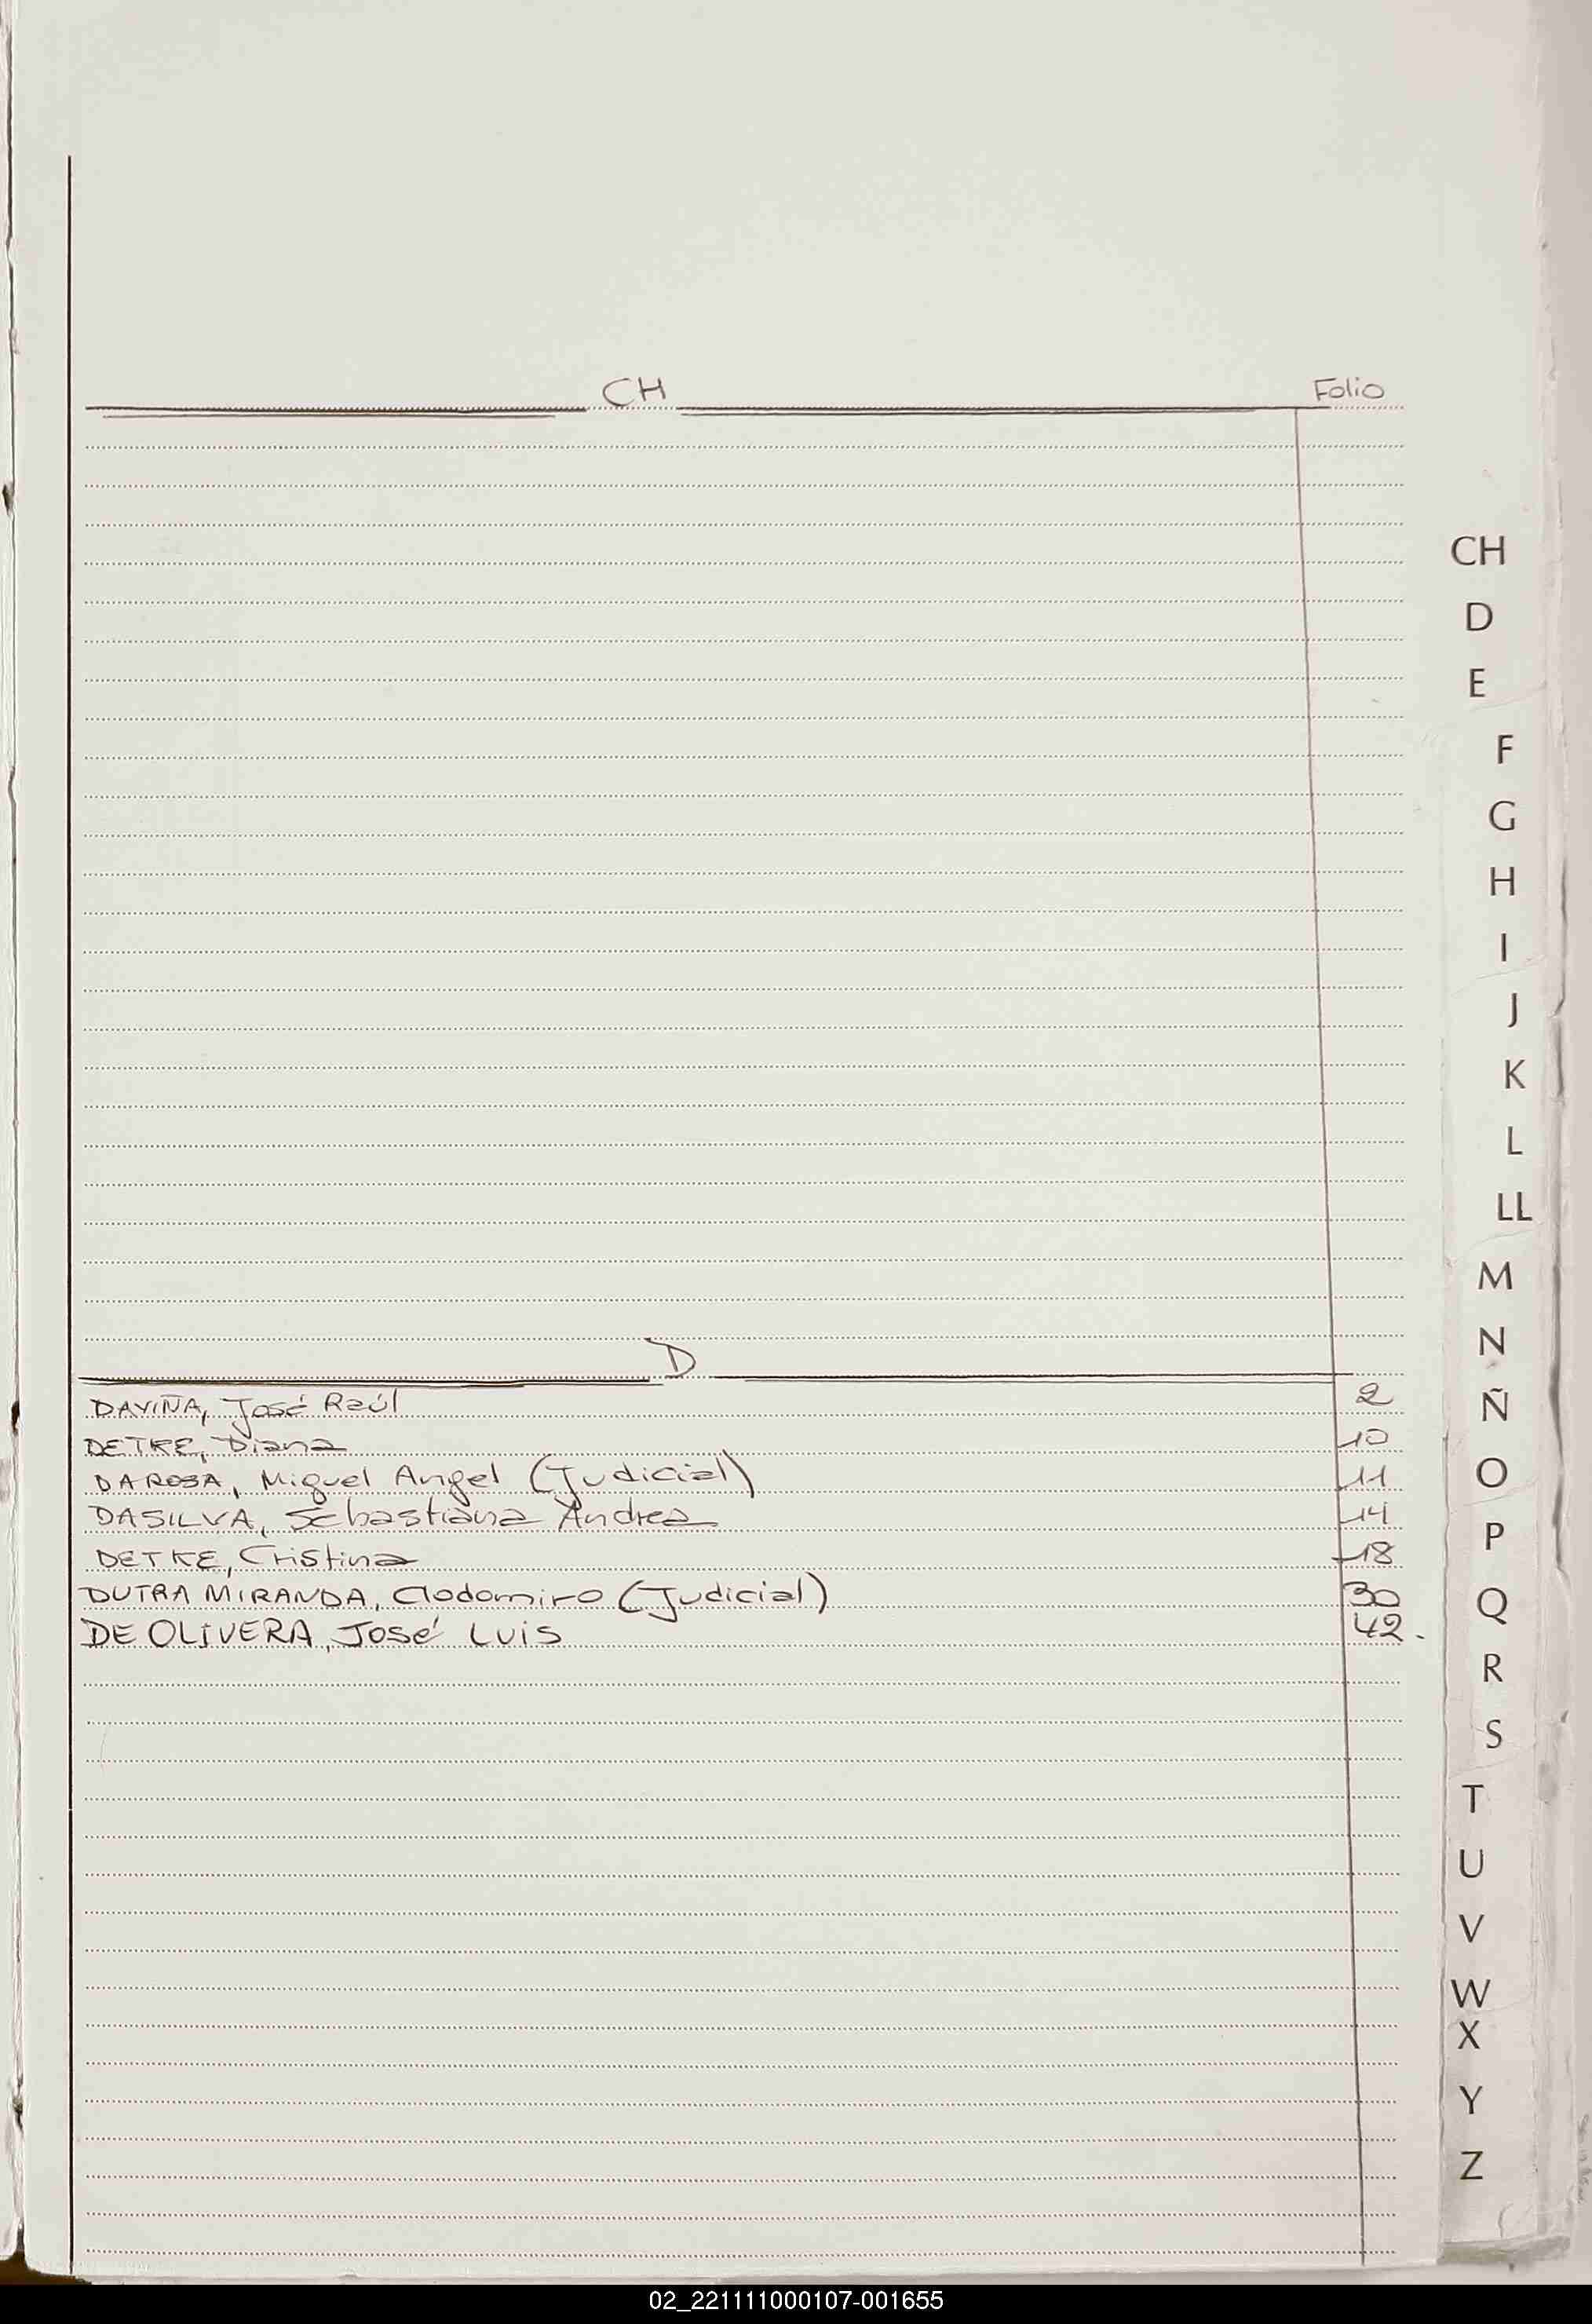 CH Folio
D
DAVIÑA, José Raúl 2
DETKE, Diana 10
DAROSA, Miguel Angel (Judicial) 11
DASILVA, Sebastiana Andrea 14
DETKE, Cristina 18
DUTRA MIRANDA, Clodomiro (Judicial) 30
DE OLIVERA, José Luis 42.
CH
D
E
F
G
H
I
J
K
L
LL
M
N
Ñ
O
P
Q
R
S
T
U
V
W
X
Y
Z
02_221111000107-001655